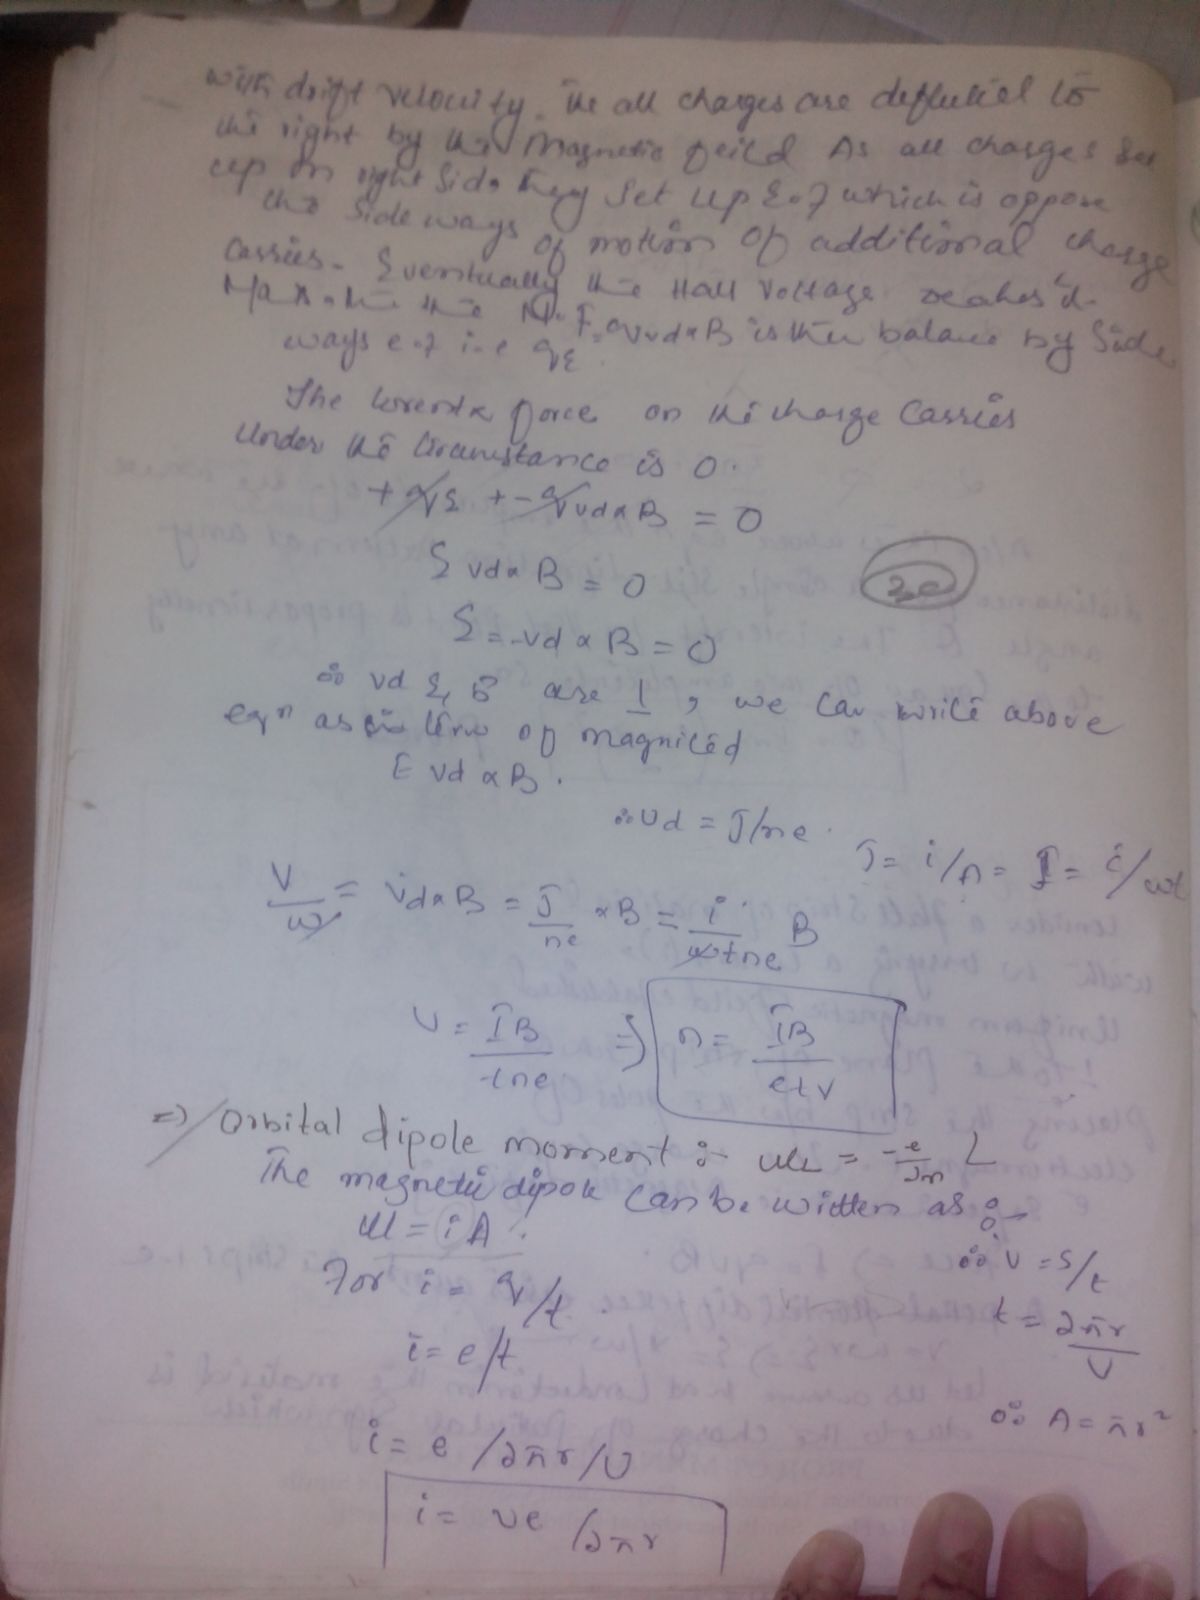 with drift velocity. the all charges are deflected to
the right by the Magnetic feild As all charges set
up on right side they set up E.F which is oppose
the side ways of motion of additional charge
carries. Eventually the Hall voltage reaches it
Max. the M.F. qvd×B is then balance by side
ways e.f i.e qE
The Lorentz force on the charge carries
Under the Circumstance is 0.
+ qE + - qvd×B = 0
E vd×B = 0
2e
E = -vd×B = 0
∴ vd & B are ⊥, we can write above
eqn as in term of magnited
E vd×B.
∴ vd = J/ne.
J = i/A = I = i/wt
V/w = vd×B = J/ne ×B = i/wtne B
V = IB/tne ⇒ n = IB/etV
⇒ Orbital dipole moment :- μL = -e/2m L
The magnetic dipole can be written as :-
μ = iA.
∴ v = s/t
For i = q/t.
t = 2πr/v
i = e/t
∴ A = πr²
i = e/2πr/v
i = ve/2πr